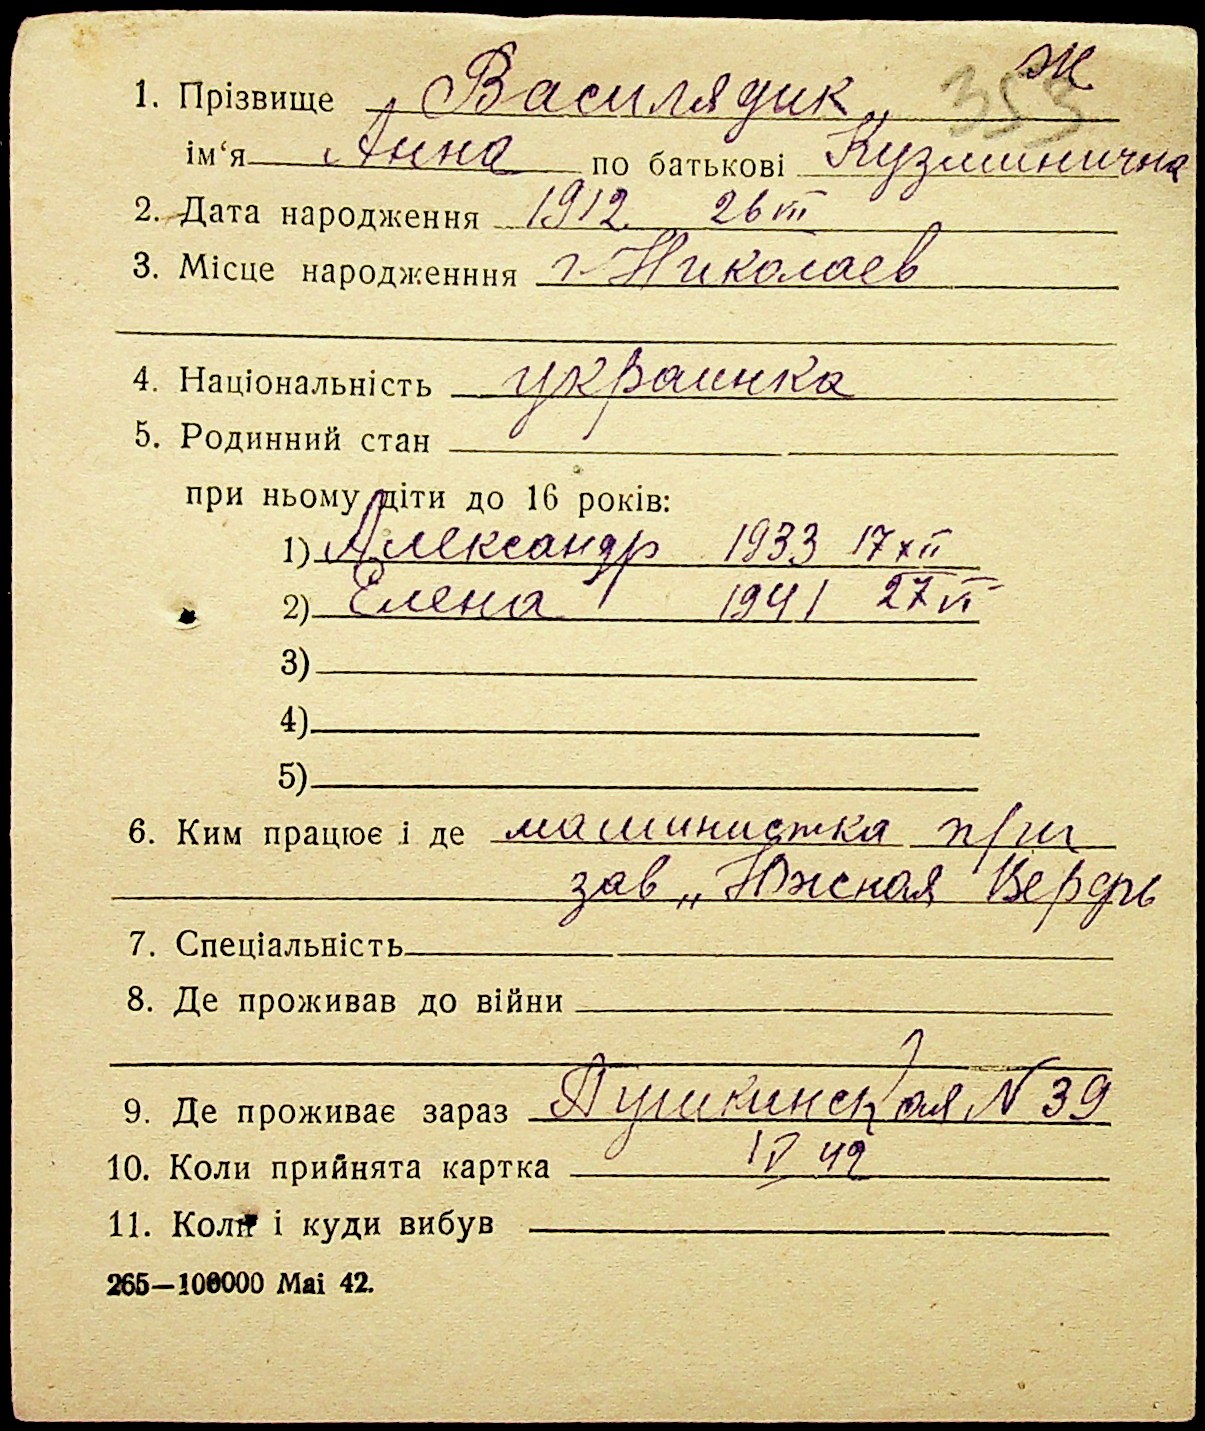 ж
353
1. Прізвище Василядик
ім‘я Анна по батькові Кузминична
2. Дата народження 1912. 26 VII
3. Місце народженння г. Николаев
4. Національність украинка
5. Родинний стан
при ньому діти до 16 років:
1) Александр 1933 17 XII
2) Елена 1941 27 VI
3)
4)
5)
6. Ким працює і де машинистка при
зав „Южная Верфь
7. Спеціальність
8. Де проживав до війни
9. Де проживає зараз Пушкинская N 39
10. Коли прийнята картка IV 42
11. Коли і куди вибув
265—100000 Маі 42.